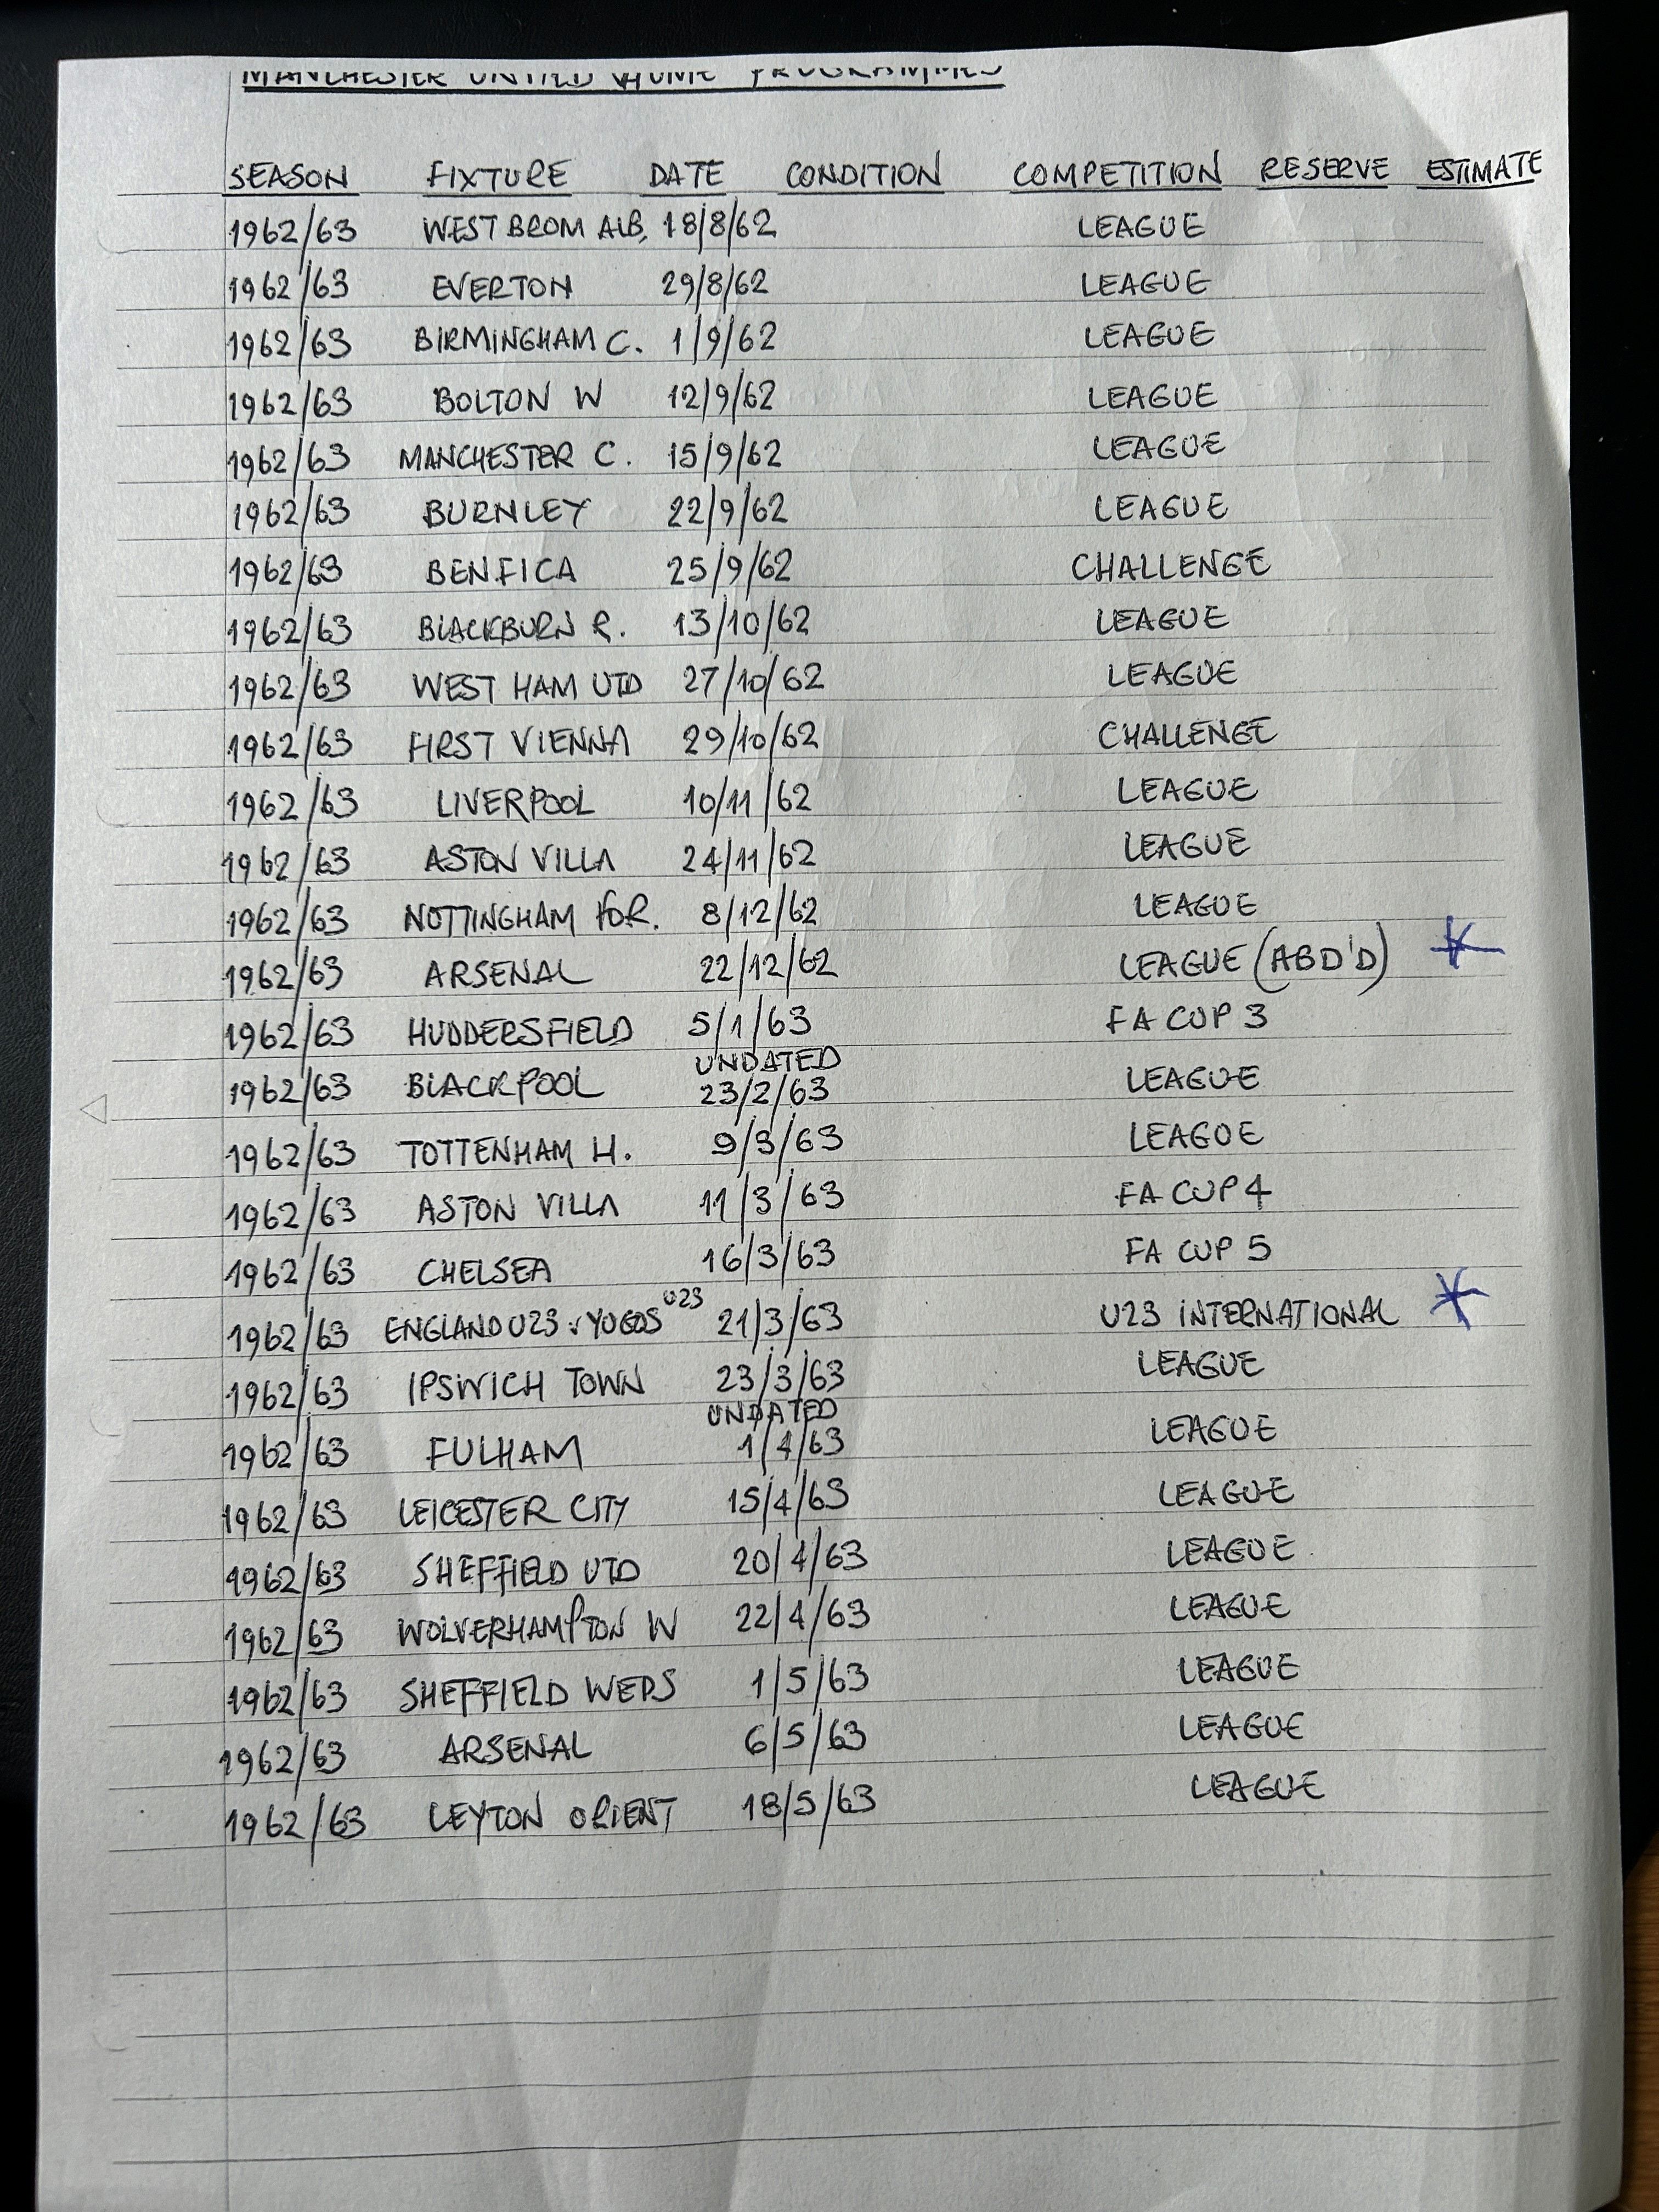 MANCHESTER UNITED HOME PROGRAMMES
SEASON FIXTURE DATE CONDITION COMPETITION RESERVE ESTIMATE
1962/63 WEST BROM ALB. 18/8/62 LEAGUE
1962/63 EVERTON 29/8/62 LEAGUE
1962/63 BIRMINGHAM C. 1/9/62 LEAGUE
1962/63 BOLTON W 12/9/62 LEAGUE
1962/63 MANCHESTER C. 15/9/62 LEAGUE
1962/63 BURNLEY 22/9/62 LEAGUE
1962/63 BENFICA 25/9/62 CHALLENGE
1962/63 BLACKBURN R. 13/10/62 LEAGUE
1962/63 WEST HAM UTD 27/10/62 LEAGUE
1962/63 FIRST VIENNA 29/10/62 CHALLENGE
1962/63 LIVERPOOL 10/11/62 LEAGUE
1962/63 ASTON VILLA 24/11/62 LEAGUE
1962/63 NOTTINGHAM FOR. 8/12/62 LEAGUE
1962/63 ARSENAL 22/12/62 LEAGUE (ABD'D) *
1962/63 HUDDERSFIELD 5/1/63 FA CUP 3
UNDATED
1962/63 BLACKPOOL 23/2/63 LEAGUE
1962/63 TOTTENHAM H. 9/3/63 LEAGUE
1962/63 ASTON VILLA 11/3/63 FA CUP 4
1962/63 CHELSEA 16/3/63 FA CUP 5
1962/63 ENGLAND U23 v YUGOS U23 21/3/63 U23 INTERNATIONAL *
1962/63 IPSWICH TOWN 23/3/63 LEAGUE
UNDATED
1962/63 FULHAM 1/4/63 LEAGUE
1962/63 LEICESTER CITY 15/4/63 LEAGUE
1962/63 SHEFFIELD UTD 20/4/63 LEAGUE
1962/63 WOLVERHAMPTON W 22/4/63 LEAGUE
1962/63 SHEFFIELD WEDS 1/5/63 LEAGUE
1962/63 ARSENAL 6/5/63 LEAGUE
1962/63 LEYTON ORIENT 18/5/63 LEAGUE